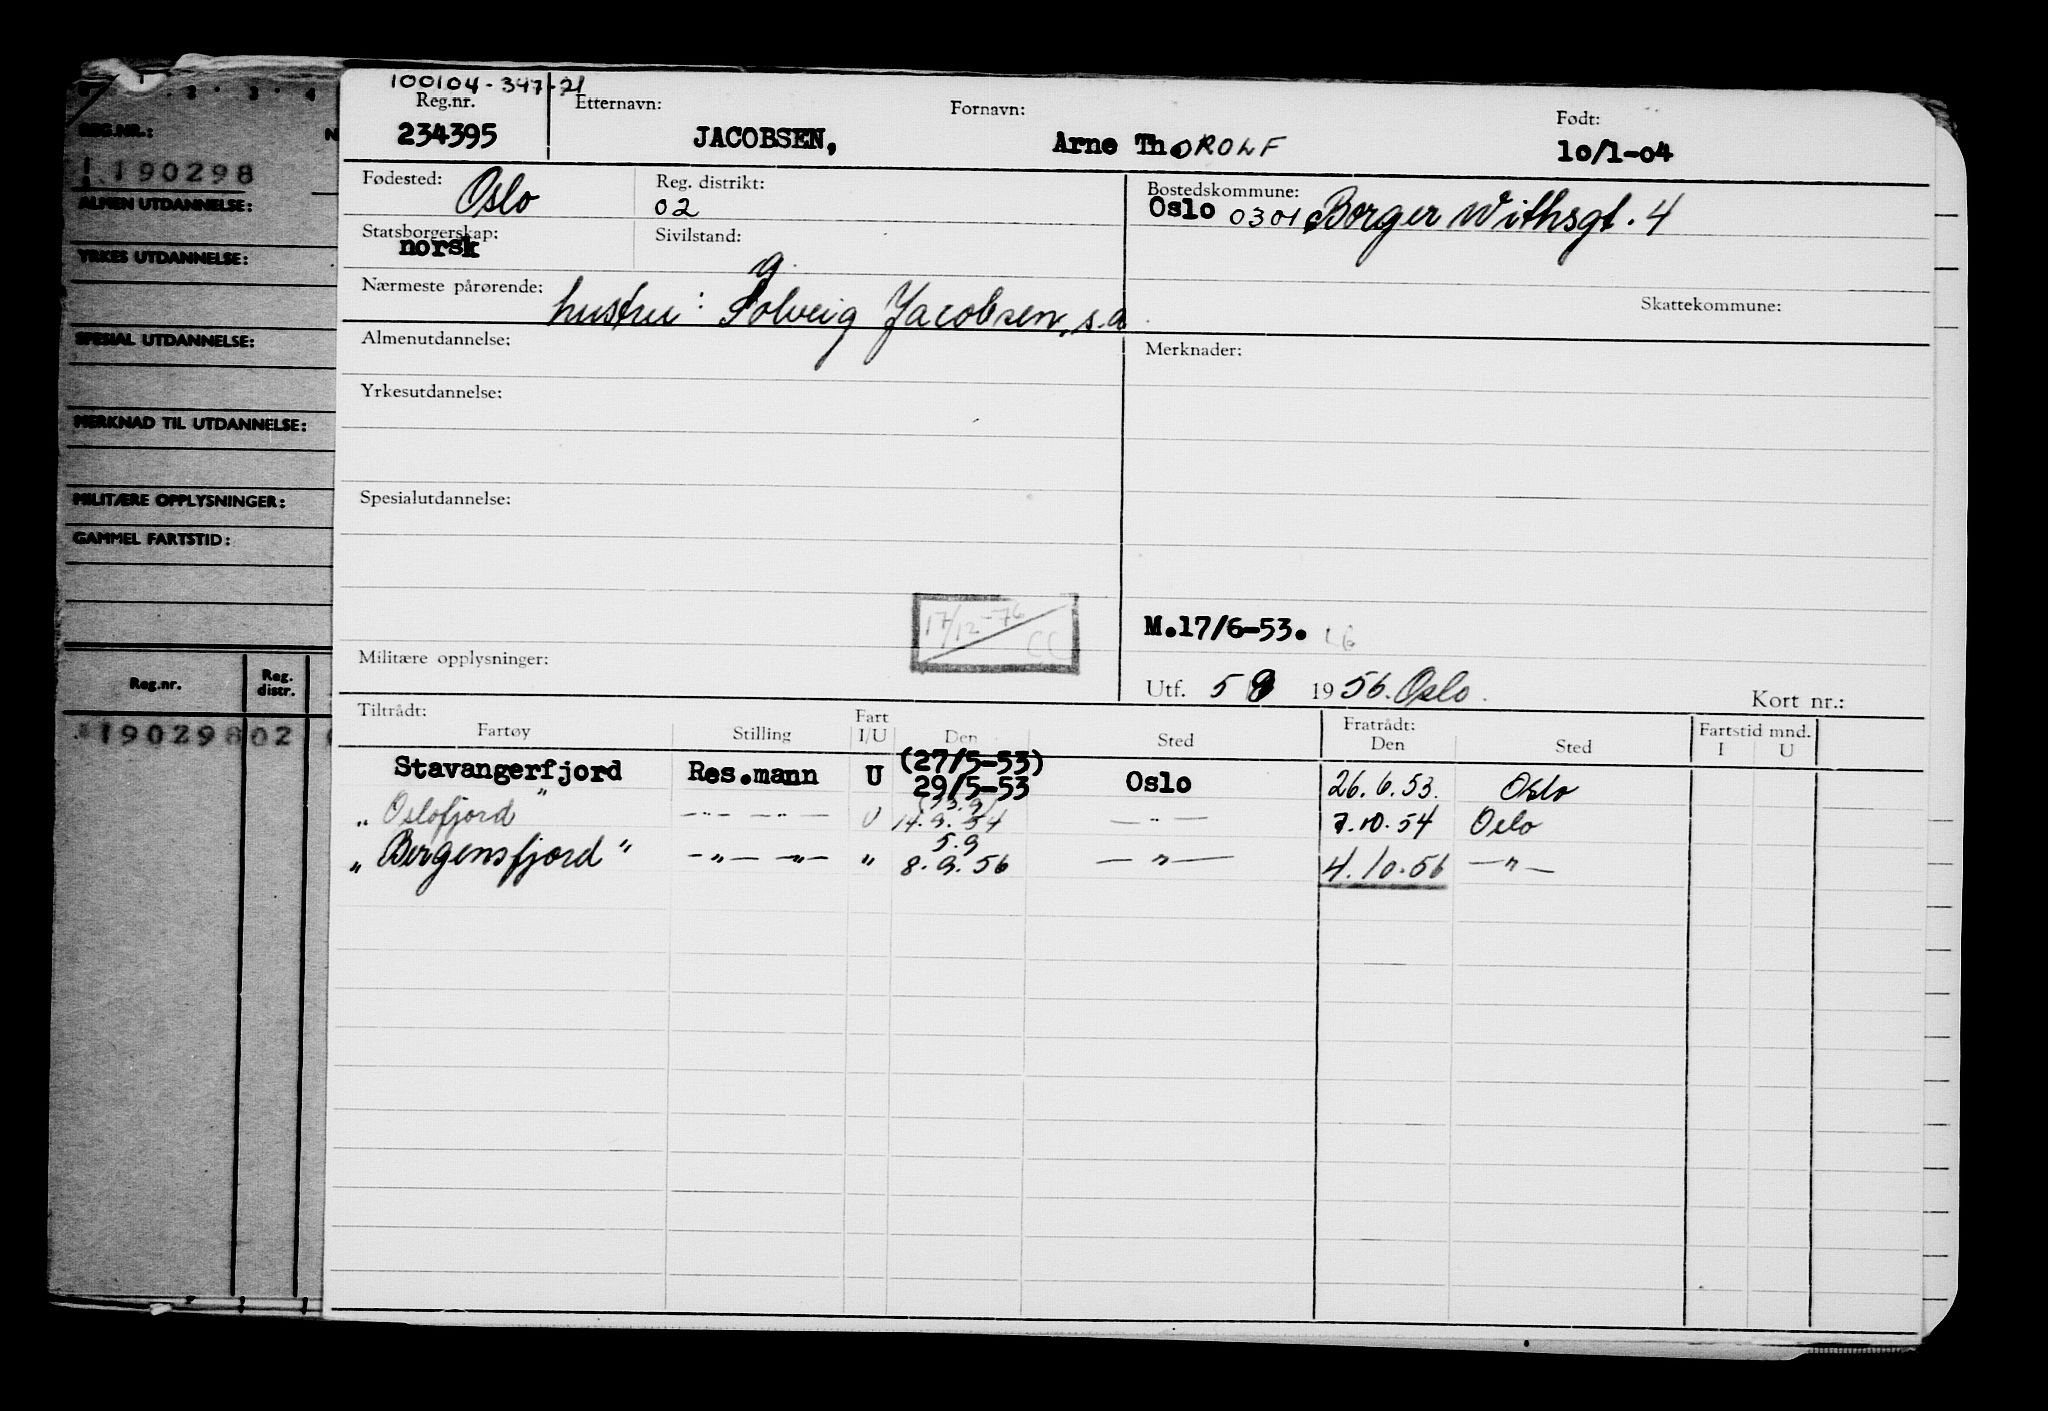 2 . 3 . 4
REG.NR.:
190298
ALMEN UTDANNELSE:
YRKES UTDANNELSE:
SPESIAL UTDANNELSE:
MERKNAD TIL UTDANNELSE:
MILITÆRE OPPLYSNINGER:
GAMMEL FARTSTID:
Reg.nr. Reg. distr.
190298 02
100104-347-21
Reg.nr. Etternavn: Fornavn: Født:
234395 JACOBSEN, Arne ThOROLF 10/1-04
Fødested: Oslo Reg. distrikt: Bostedskommune:
02 Oslo 0301 Borger Withsgt. 4
Statsborgerskap: Sivilstand:
norsk g.
Nærmeste pårørende: hustru: Solveig Jacobsen, s.a. Skattekommune:
Almenutdannelse: Merknader:
Yrkesutdannelse:
Spesialutdannelse:
17/12-76 CC
M.17/6-53.
Militære opplysninger:
Utf. 5 9 1956. Oslo. Kort nr.:
Tiltrådt: Fartøy Stilling Fart I/U Den Sted Fratrådt: Den Sted Fartstid mnd. I U
Stavangerfjord Res.mann U (27/5-53) 29/5-53 Oslo 26.6.53. Oslo
„ Oslofjord " —"— —"— U (13.9) 14.9.54 —"— 7.10.54 Oslo
„ Bergensfjord " —"— —"— " 5.9 8.9.56 —"— 4.10.56 —"—